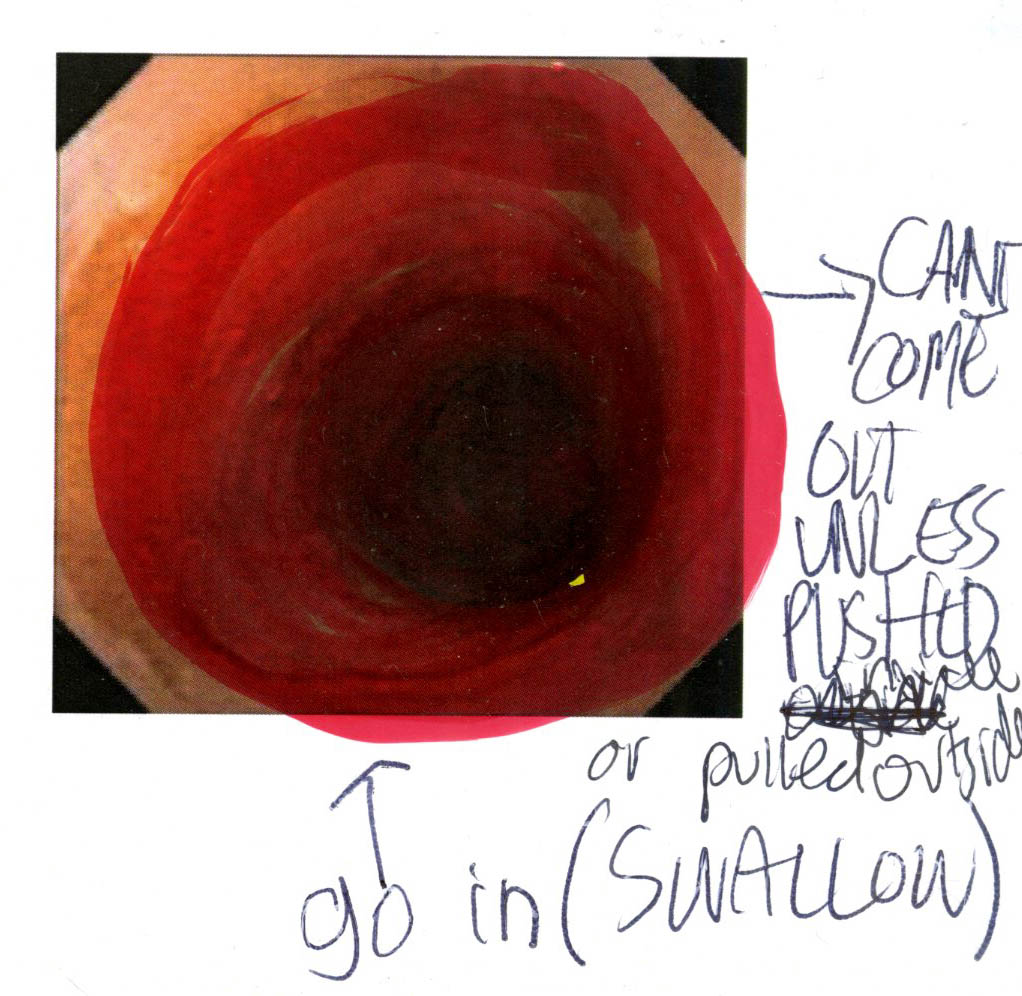 CANT
COME
OUT
UNLESS
PUSHED
or pulled outside
go in (SWALLOW)